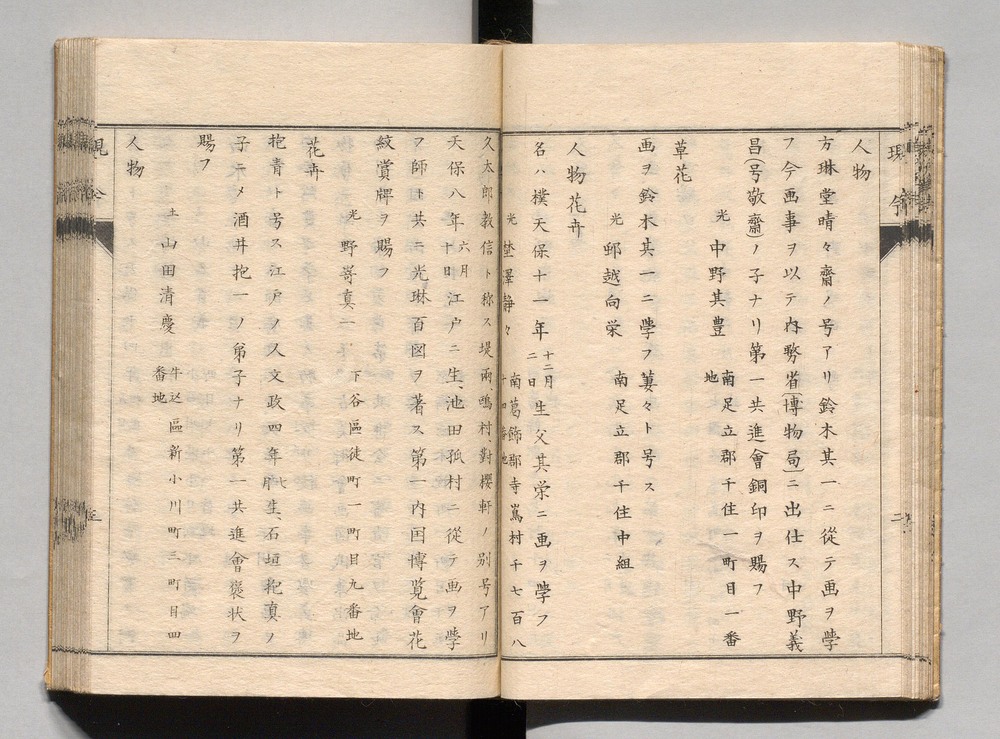 現今
人物
方琳堂晴々齋ノ号アリ鈴木其一ニ從テ画ヲ學
フ今画事ヲ以テ内務省(博物局)ニ出仕ス中野義
昌(号敬齋)ノ子ナリ第一共進會銅印ヲ賜フ
光 中野其豊 南足立郡千住一町目一番
地
草花
画ヲ鈴木其一ニ學フ萋々ト号ス
光 邨越向栄 南足立郡千住中組
人物花卉
名ハ樸天保十一年十二月二日生父其栄ニ画ヲ學フ
光 埜澤静々 南葛飾郡寺嶌村千七百八
十四番地
久太郎教信ト称ス堤雨鴫村對櫻軒ノ別号アリ
天保八年六月十日江戸ニ生池田孤村ニ從テ画ヲ學
ヲ師ト共ニ光琳百図ヲ著ス第一内国博覧會花
紋賞牌ヲ賜フ
光 野嵜真一 下谷區徒町一町目九番地
花卉
抱青ト号ス江戸ノ人文政四年七月生石垣抱真ノ
子ニメ酒井抱一ノ弟子ナリ第一共進會褒状ヲ
賜フ
土 山田清慶 牛込區新小川町三町目四
番地
人物
現今